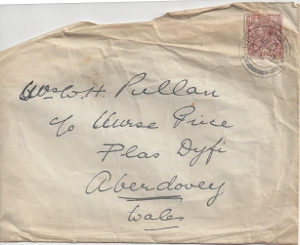 Mrs W. H. Pullan
c/o Nurse Price
Plas Dyfi
Aberdovey
Wales